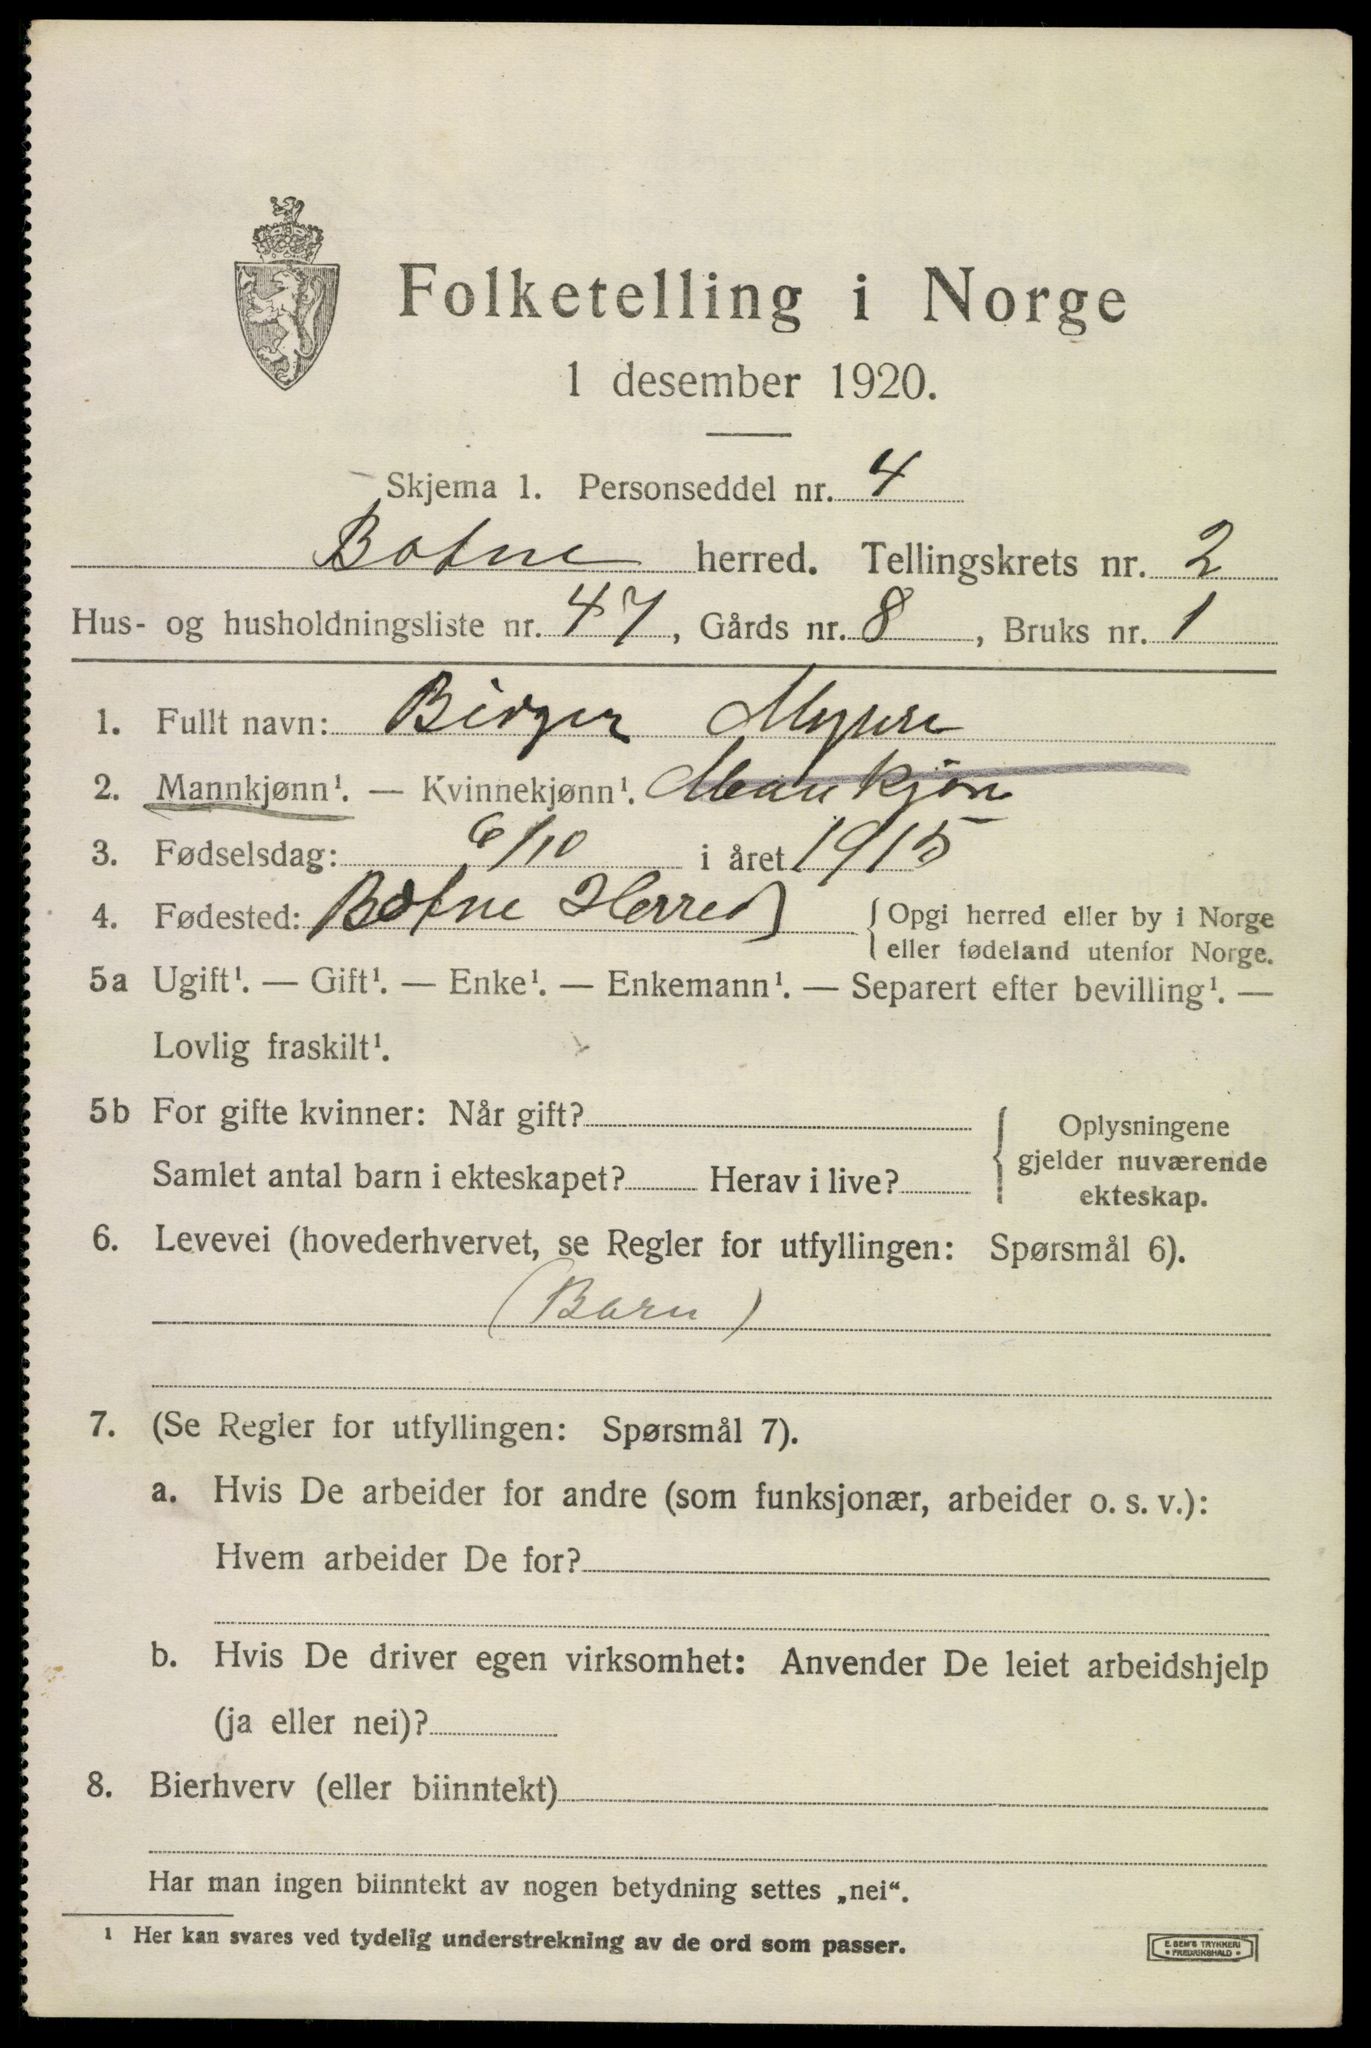 Folketelling i Norge
1 desember 1920.
Skjema 1. Personseddel nr. 4
Botne herred. Tellingskrets nr. 2
Hus- og husholdningsliste nr. 47, Gårds nr. 8, Bruks nr. 1
1. Fullt navn: Birger Myhre
2. Mannkjønn¹. — Kvinnekjønn¹. Mankjøn
3. Fødselsdag: 6/10 i året 1915
4. Fødested: Botne Herred { Opgi herred eller by i Norge
eller fødeland utenfor Norge.
5a Ugift¹. — Gift¹. — Enke¹. — Enkemann¹. — Separert efter bevilling¹. —
Lovlig fraskilt¹.
5b For gifte kvinner: Når gift?
Samlet antal barn i ekteskapet? Herav i live?
Oplysningene
gjelder nuværende
ekteskap.
6. Levevei (hovederhvervet, se Regler for utfyllingen: Spørsmål 6).
(Barn)
7. (Se Regler for utfyllingen: Spørsmål 7).
a. Hvis De arbeider for andre (som funksjonær, arbeider o. s. v.):
Hvem arbeider De for?
b. Hvis De driver egen virksomhet: Anvender De leiet arbeidshjelp
(ja eller nei)?
8. Bierhverv (eller biinntekt)
Har man ingen biinntekt av nogen betydning settes „nei“.
¹ Her kan svares ved tydelig understrekning av de ord som passer.
E. SEM'S TRYKKERI
• FREDRIKSHALD •